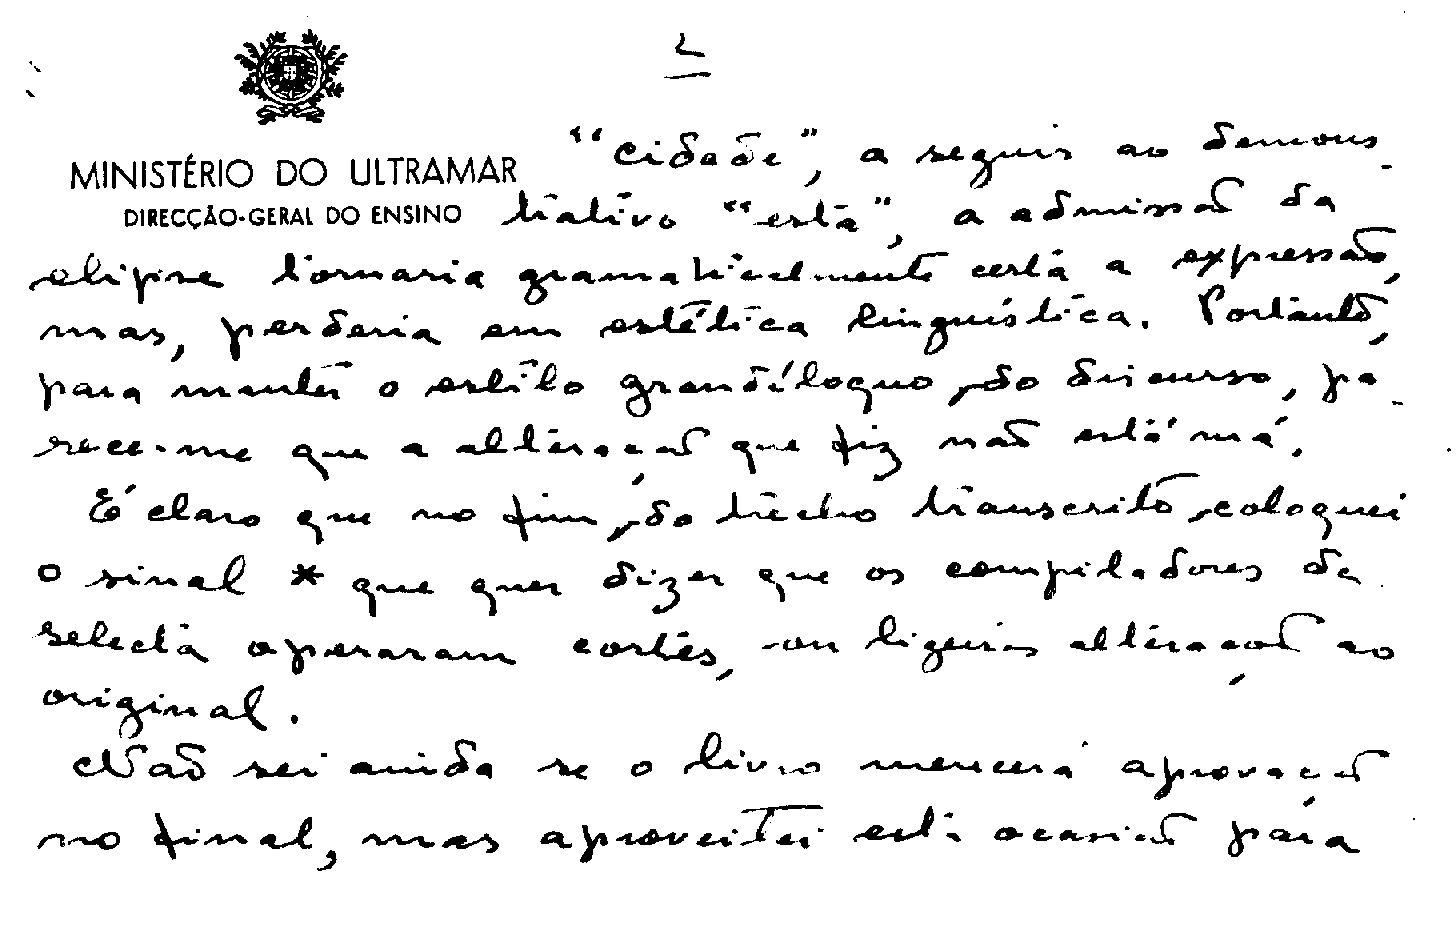 2
"cidade", a seguir ao demons-
MINISTÉRIO DO ULTRAMAR
DIRECÇÃO-GERAL DO ENSINO
trativo "esta", a admissão da
elipse tornaria gramaticalmente certa a expressão,
mas, perderia em estética linguística. Portanto,
para manter o estilo grandíloquo, do discurso, pa-
rece-me que a alteração que fiz não está má.
É claro que no fim, do trecho transcrito, coloquei
o sinal * que quer dizer que os compiladores da
selecta operaram cortes, ou ligeiras alteração ao
original.
Não sei ainda se o livro merecerá aprovação
no final, mas aproveitei esta ocasião para